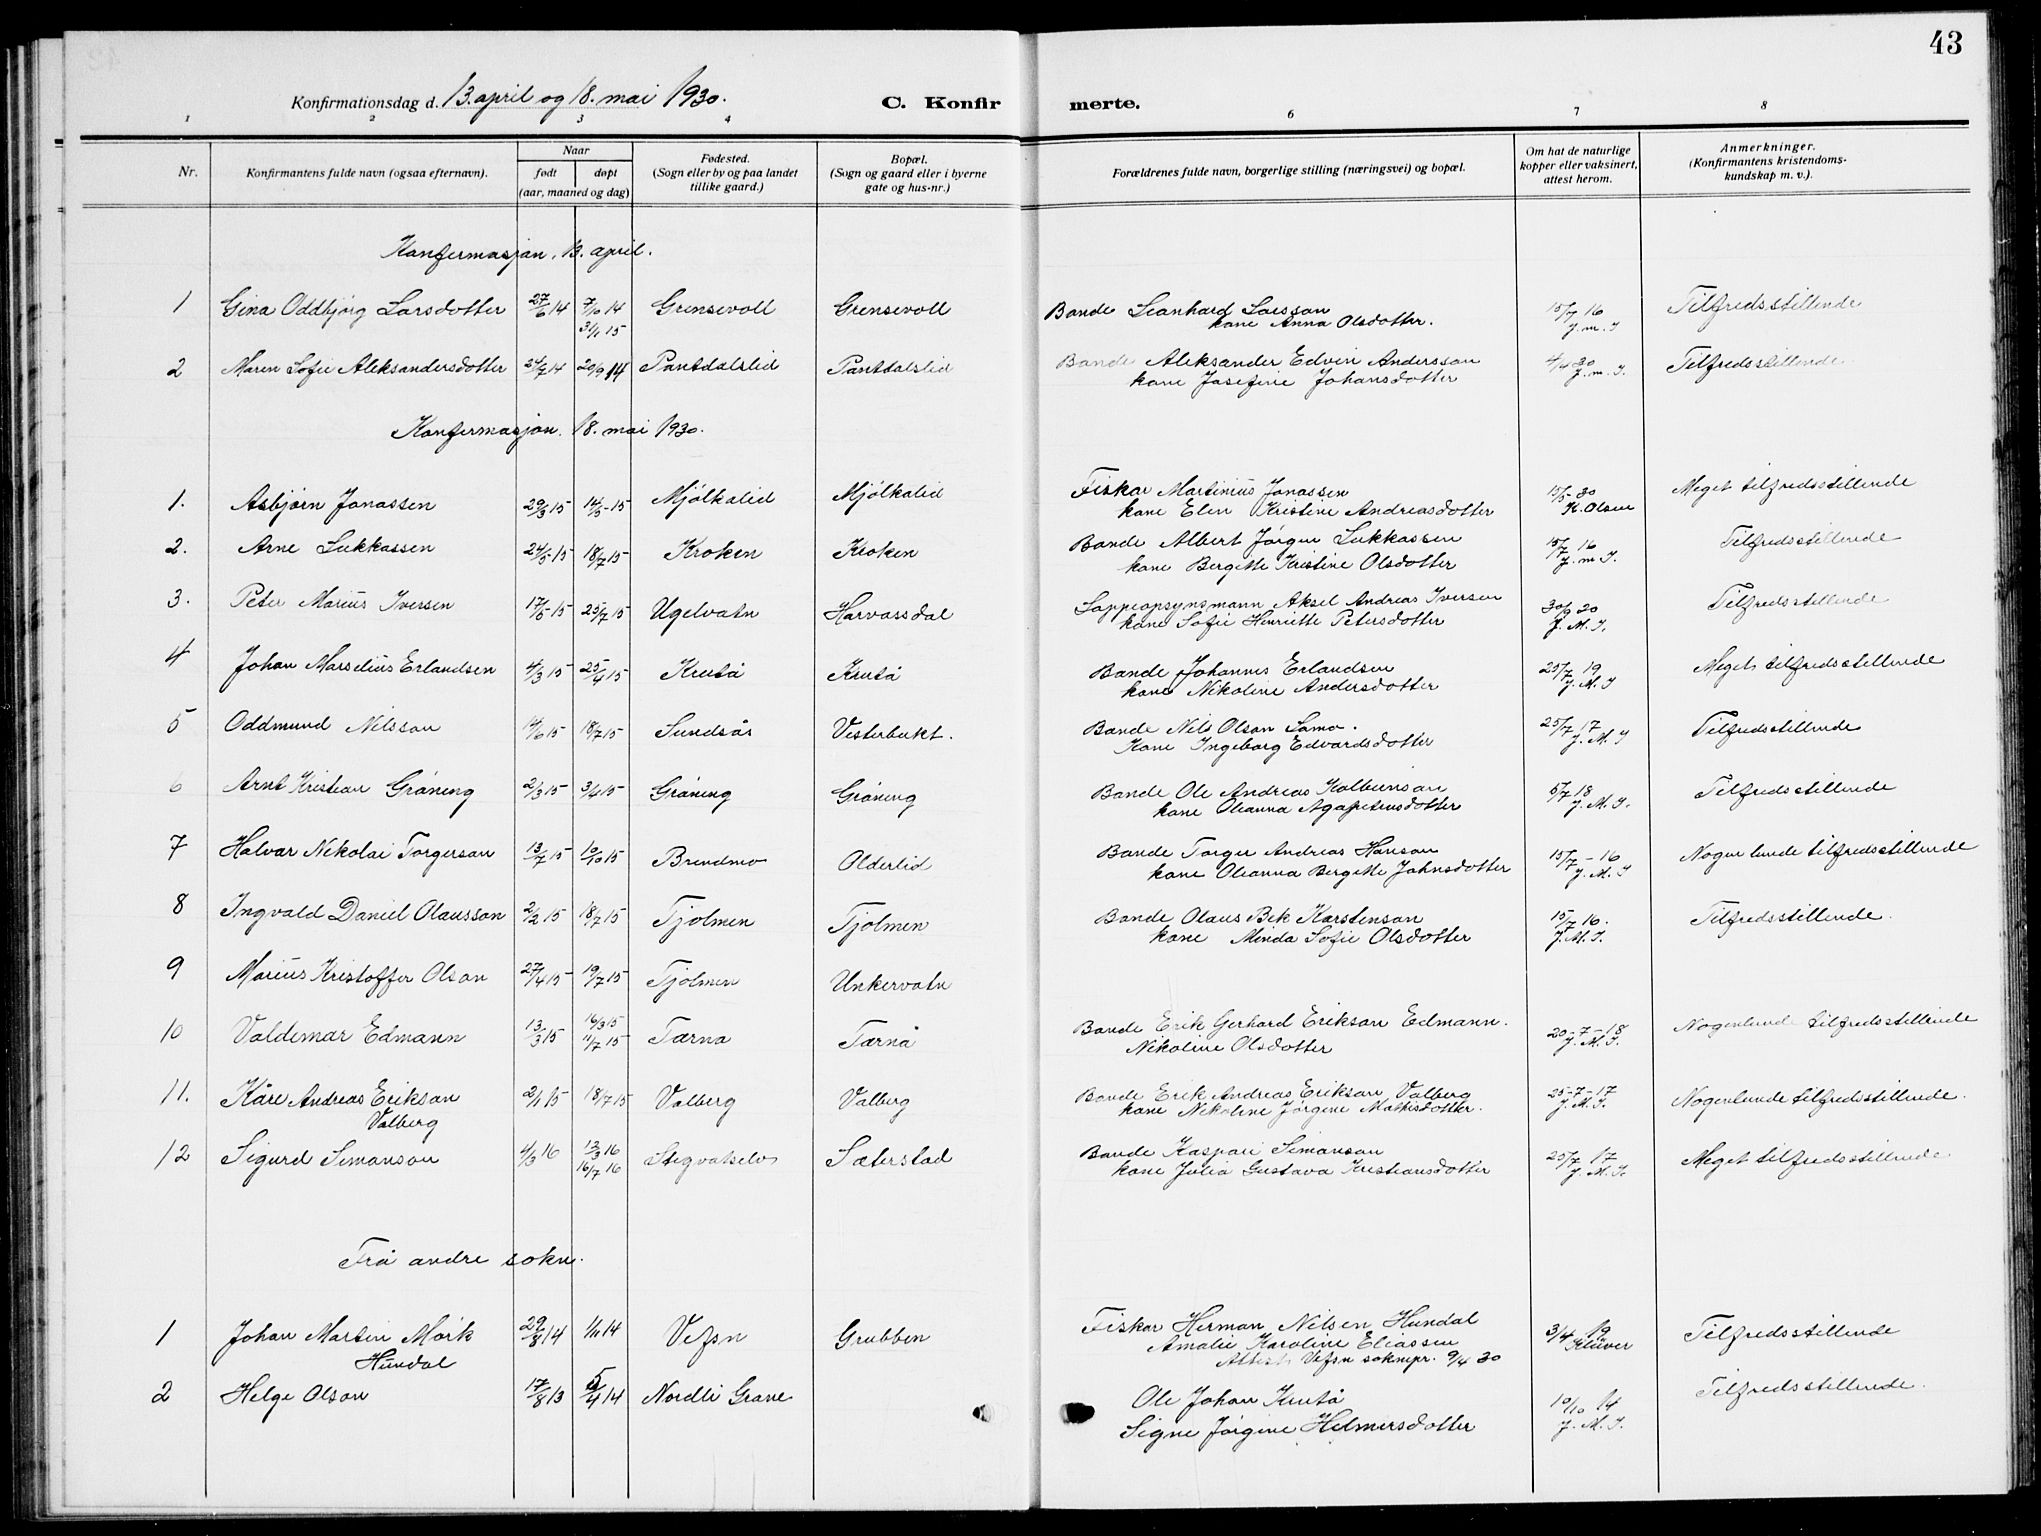 43
Konfirmationsdag d. 13. april og 18. mai 1930.
C. Konfir merte.
1 2 3 4 6 7 8
Nr.
Konfirmantens fulde navn (ogsaa efternavn).
Naar
født døpt
(aar, maaned og dag)
Fødested.
(Sogn eller by og paa landet
tillike gaard.)
Bopæl.
(Sogn og gaard eller i byerne
gate og hus-nr.)
Forældrenes fulde navn, borgerlige stilling (næringsvei) og bopæl.
Om hat de naturlige
kopper eller vaksinert,
attest herom.
Anmerkninger.
(Konfirmantens kristendoms-
kundskap m. v.).
Konfermasjon. 13. april.
1 Gina Oddbjørg Larsdotter 27/6 14 7/10 14 Grensevoll Grensevoll Bonde Leonhard Larsson 15/7 16 Tilfredsstillende
31/1 15 kone Anna Olsdotter. J. m. I
2 Maren Sofie Aleksandersdotter 24/7 14 20/9 14 Pantdalslid Pantdalslid Bonde Aleksander Edvin Andersson 4/4-30 Tilfredsstillende
kone Josefine Johansdotter J. m. I.
Konfermasjon. 18. mai 1930.
1. Asbjørn Jonassen 29/3 15 14/5-15 Mjölkalid Mjölkalid Fiskar Martinius Jonassen 15/5-30 Meget tilfredsstillende
kone Elen Kristine Andreasdotter K. Olsen
2. Arne Lukkassen 24/5 15 18/7 15 Kroken Kroken Bonde Albert Jörgen Lukkassen 15/7 16 Tilfredsstillende
kone Bergitte Kristine Olsdotter J. m I.
3. Peter Marius Iversen 17/5 15 25/7 15 Ugelvatn Harvassdal Lappeopsynsmann Aksel Andreas Iversen 30/9 20 Tilfredsstillende
kone Sofie Henriette Petersdotter J. M. I.
4 Johan Marselius Erlandsen 4/3 15 25/4 15 Krutå Krutå Bonde Johannes Erlandsen 25/7 19 Meget tilfredsstillende
kone Nikoline Andersdotter J. M. I
5 Oddmund Nilsson 14/6 15 18/7 15 Sundsås Vesterbukt. Bonde Nils Olson Samo. 25/7 17 Tilfredsstillende
Kone Ingeborg Edvardsdotter J. M. I
6 Arnt Kristian Gröning 2/3 15 3/4 15 Gröning Gröning Bonde Ole Andreas Kolbeinson 5/7 18 Tilfredsstillende
kone Oleanna Agapetusdotter J. M. I.
7 Halvar Nikolai Torgerson 13/7 15 10/10 15 Brendmo Olderlid Bonde Torger Andreas Hanson 15/7-16 Nogenlunde tilfredsstillende
kone Oleanna Bergitte Johnsdotter J. M. I
8 Ingvald Daniel Olausson 2/2 15 18/7 15 Tjolmen Tjolmen Bonde Olaus Bek Karstenson 15/7 16. Tilfredsstillende.
kone Minda Sofie Olsdotter J. M. I.
9 Marius Kristoffer Olson 27/4 15 19/7 15 Tjolmen Unkervatn
10 Valdemar Edmann 13/3 15 16/3 15 Tärna Tärnå Bonde Erik Gerhard Erikson Edmann. 20-7-18 Nogenlunde tilfredsstillende
11/7 15 Nikoline Olsdotter J. M. I.
11. Kåre Andreas Erikson 2/1 15 18/7 15 Valberg Valberg Bonde Erik Andreas Erikson Valberg 25-7-17 Nogenlunde tilfredsstillende.
Valberg kone Nikoline Jörgine Mathisdotter. J. M. I.
12 Sigurd Simonson 4/3 16 13/3 16 Stegvatselv Sæterstad Bonde Kaspar Simonson 25/7 17 Meget tilfredsstillende
16/7 16 kone Julia Gustava Kristiansdotter J. M. I.
Frå andre sokn.
1 Johan Martin Mörk 29/8 14 1/11 14 Vefsn Grubben Fiskar Herman Nilsen Hundal 3/4 19 Tilfredsstillende
Hundal Amalie Karoline Eliassen Klüver
Attest Vefsn soknepr. 9/4 30
2 Helge Olson 17/8 13 5/4 14 Nordli Grane Ole Johan Krutå 10/10 14 Tilfredsstillende.
Signe Jörgine Helmersdotter J. M. I.